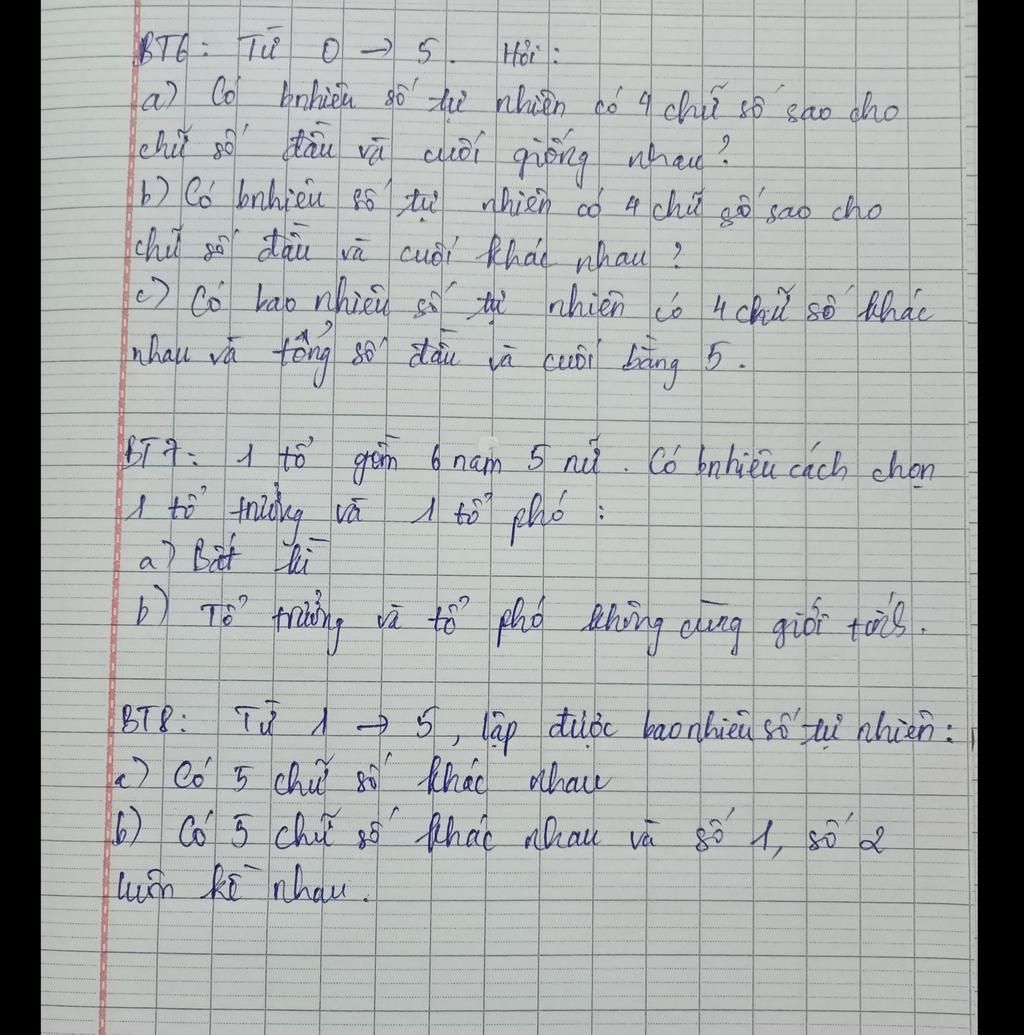 BT6: Từ 0 → 5. Hỏi:
a) Có bnhiêu số tự nhiên có 4 chữ số sao cho
chữ số đầu và cuối giống nhau?
b) Có bnhiêu số tự nhiên có 4 chữ số sao cho
chữ số đầu và cuối khác nhau?
c) Có bao nhiêu số tự nhiên có 4 chữ số khác
nhau và tổng số đầu và cuối bằng 5.
BT7: 1 tổ gồm 6 nam 5 nữ. Có bnhiêu cách chọn
1 tổ trưởng và 1 tổ phó:
a) Bất kì
b) Tổ trưởng và tổ phó không cùng giới
BT8: Từ 1 → 5, lập được bao nhiêu số tự nhiên:
a) Có 5 chữ số khác nhau
b) Có 5 chữ số khác nhau và số 1, số 2
luôn kề nhau.